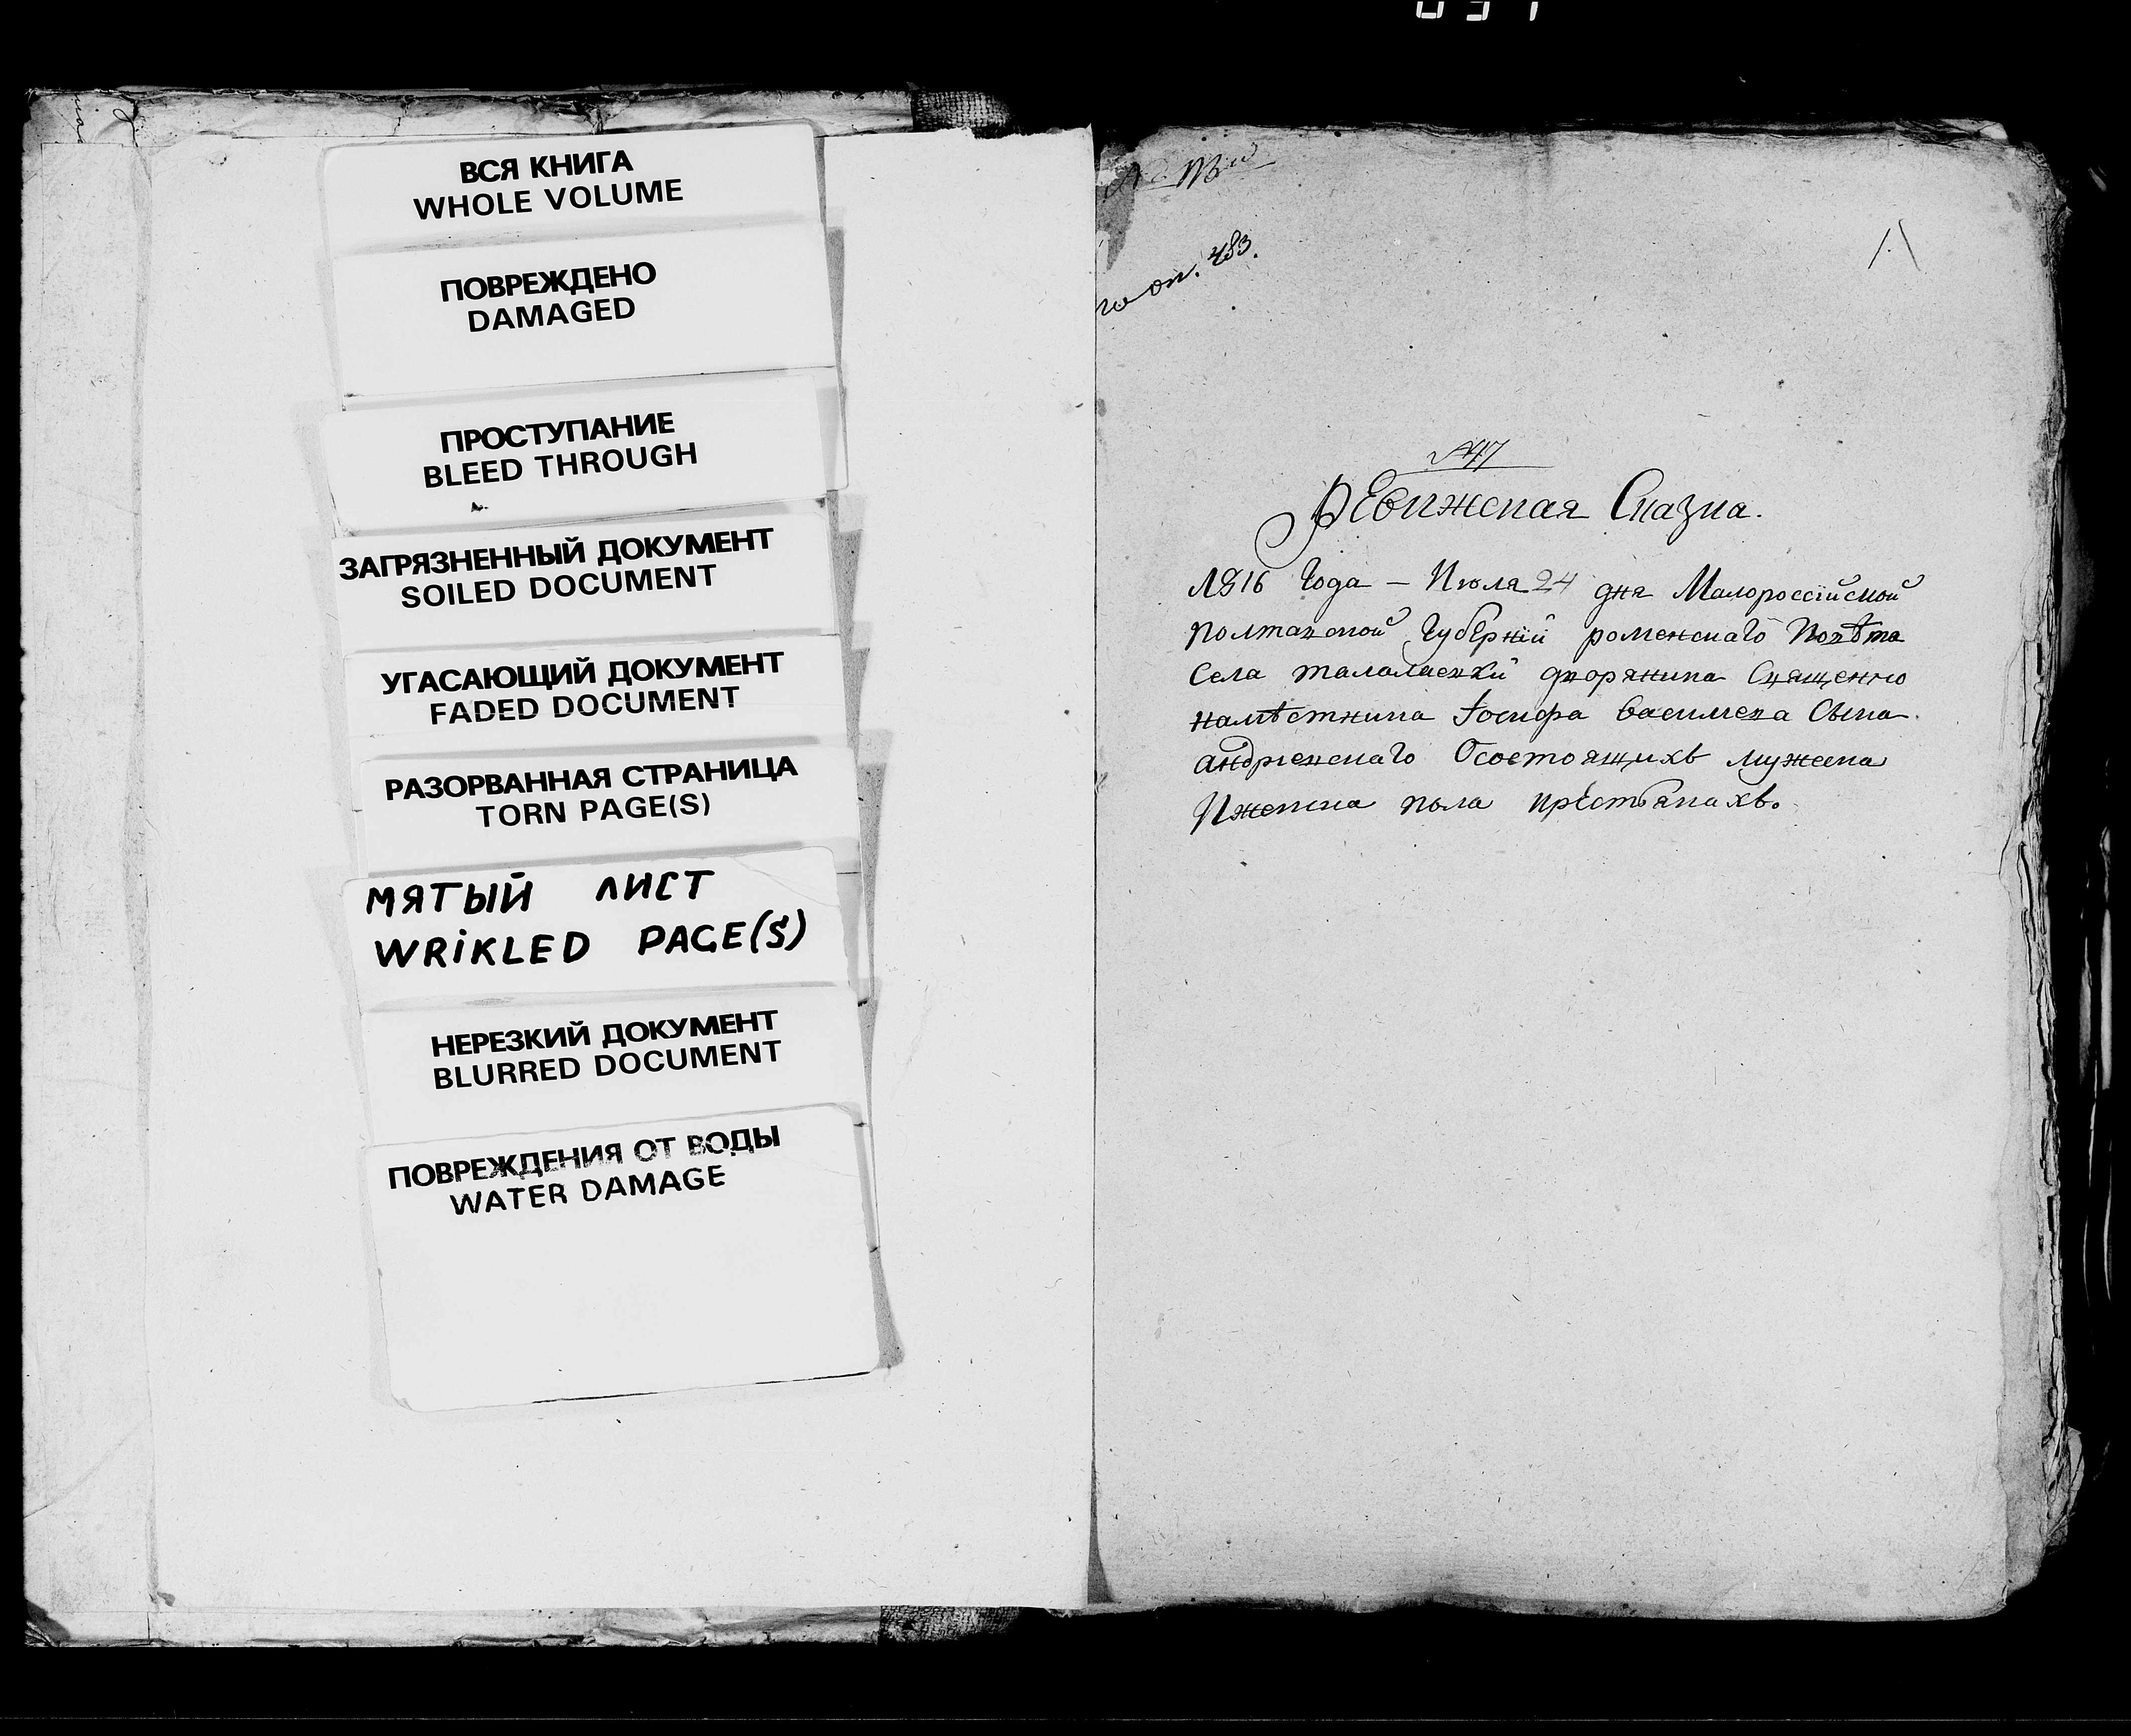 ВСЯ КНИГА
WHOLE VOLUME
ПОВРЕЖДЕНО
DAMAGED
ПРОСТУПАНИЕ
BLEED THROUGH
ЗАГРЯЗНЕННЫЙ ДОКУМЕНТ
SOILED DOCUMENT
УГАСАЮЩИЙ ДОКУМЕНТ
FADED DOCUMENT
РАЗОРВАННАЯ СТРАНИЦА
TORN PAGE(S)
МЯТЫЙ ЛИСТ
WRIKLED PAGE(S)
НЕРЕЗКИЙ ДОКУМЕНТ
BLURRED DOCUMENT
ПОВРЕЖДЕНИЯ ОТ ВОДЫ
WATER DAMAGE
го оп. 483.
№47
Ревижская Сказка.
1816 Года – Июля 24 дня Малороссійской
полтавской Губерніи роменскаго Повѣта
Села талалаевки дворянина Священно
намѣстника Іосифа василева Сына
андріевскаго Осостоящихъ мужеска
Иженска пола крестьянахъ.